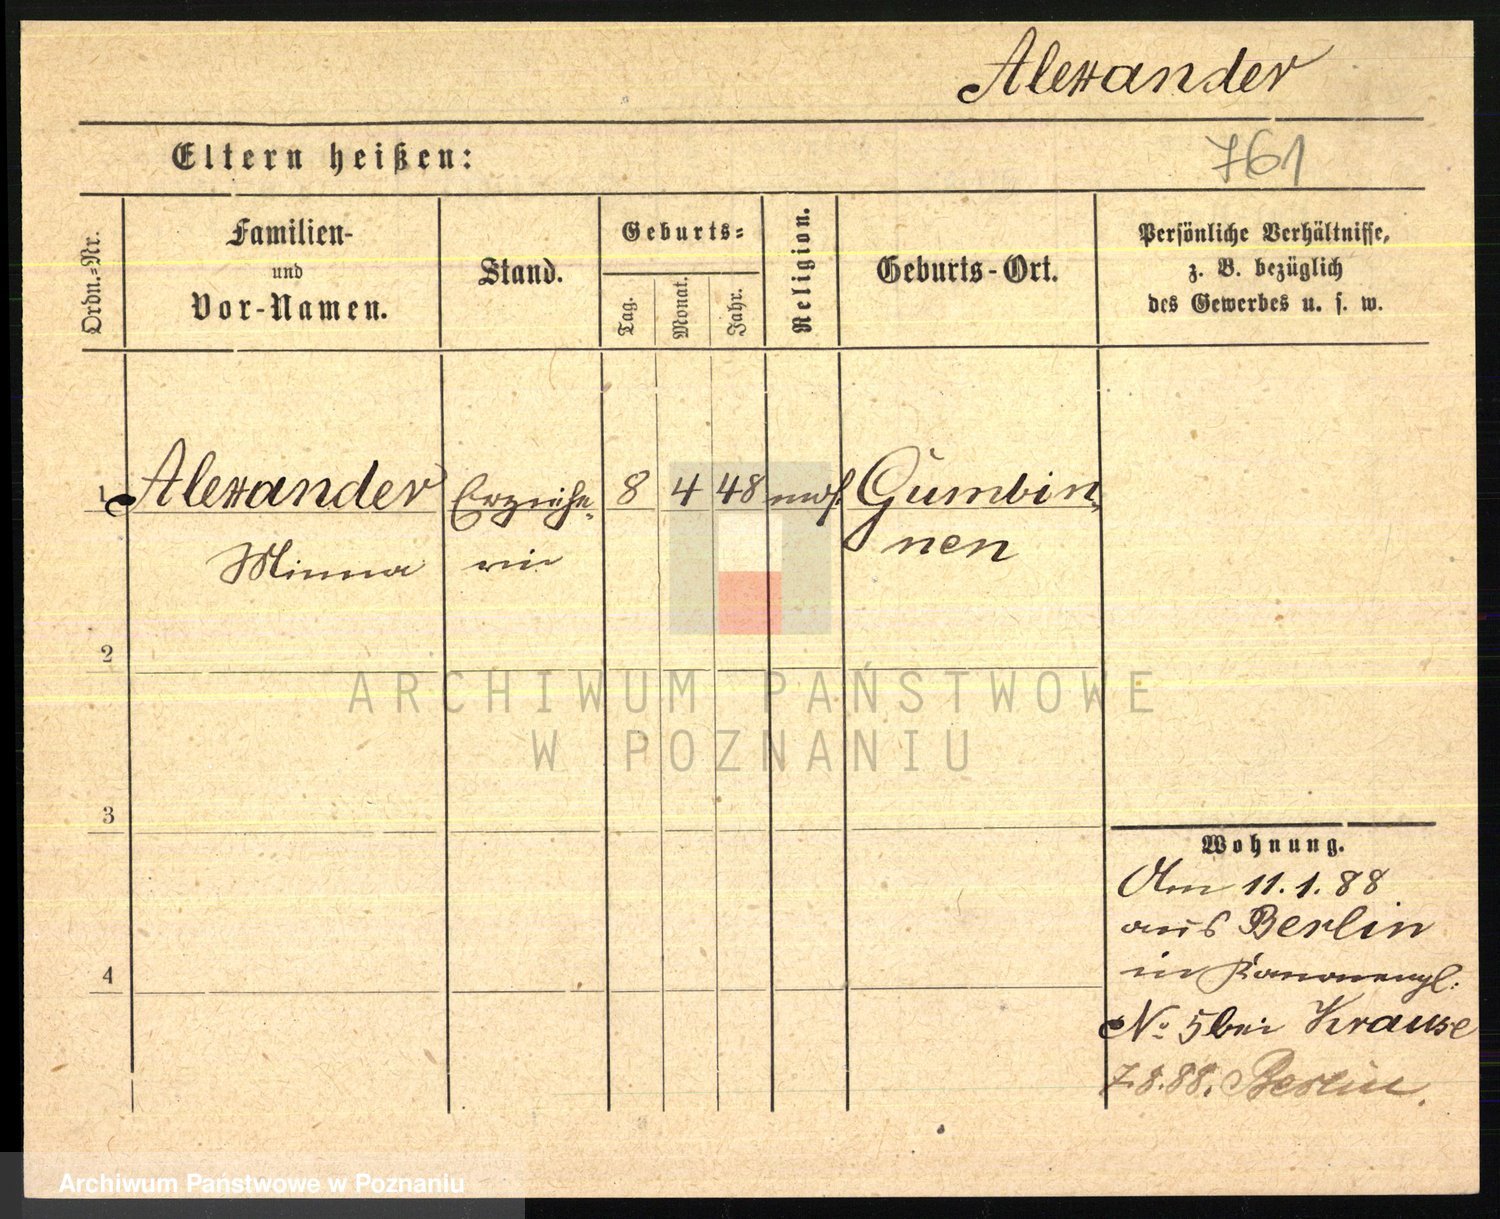 Alexander
761
Eltern heißen:
Ordn.-Nr.
Familien-
und
Vor-Namen.
Stand.
Geburts-
Tag.
Monat.
Jahr.
Religion.
Geburts-Ort.
Persönliche Verhältnisse,
z. B. bezüglich
des Gewerbes u. s. w.
1 Alexander Erziehe- 8 4 48 mos. Gumbin-
Minna rin nen
2
ARCHIWUM PAŃSTWOWE
W POZNANIU
3
4
Wohnung.
Am 11.1.88
aus Berlin
in Kanonenpl.
No. 5 bei Krause
7.8.88. Berlin.
Archiwum Państwowe w Poznaniu